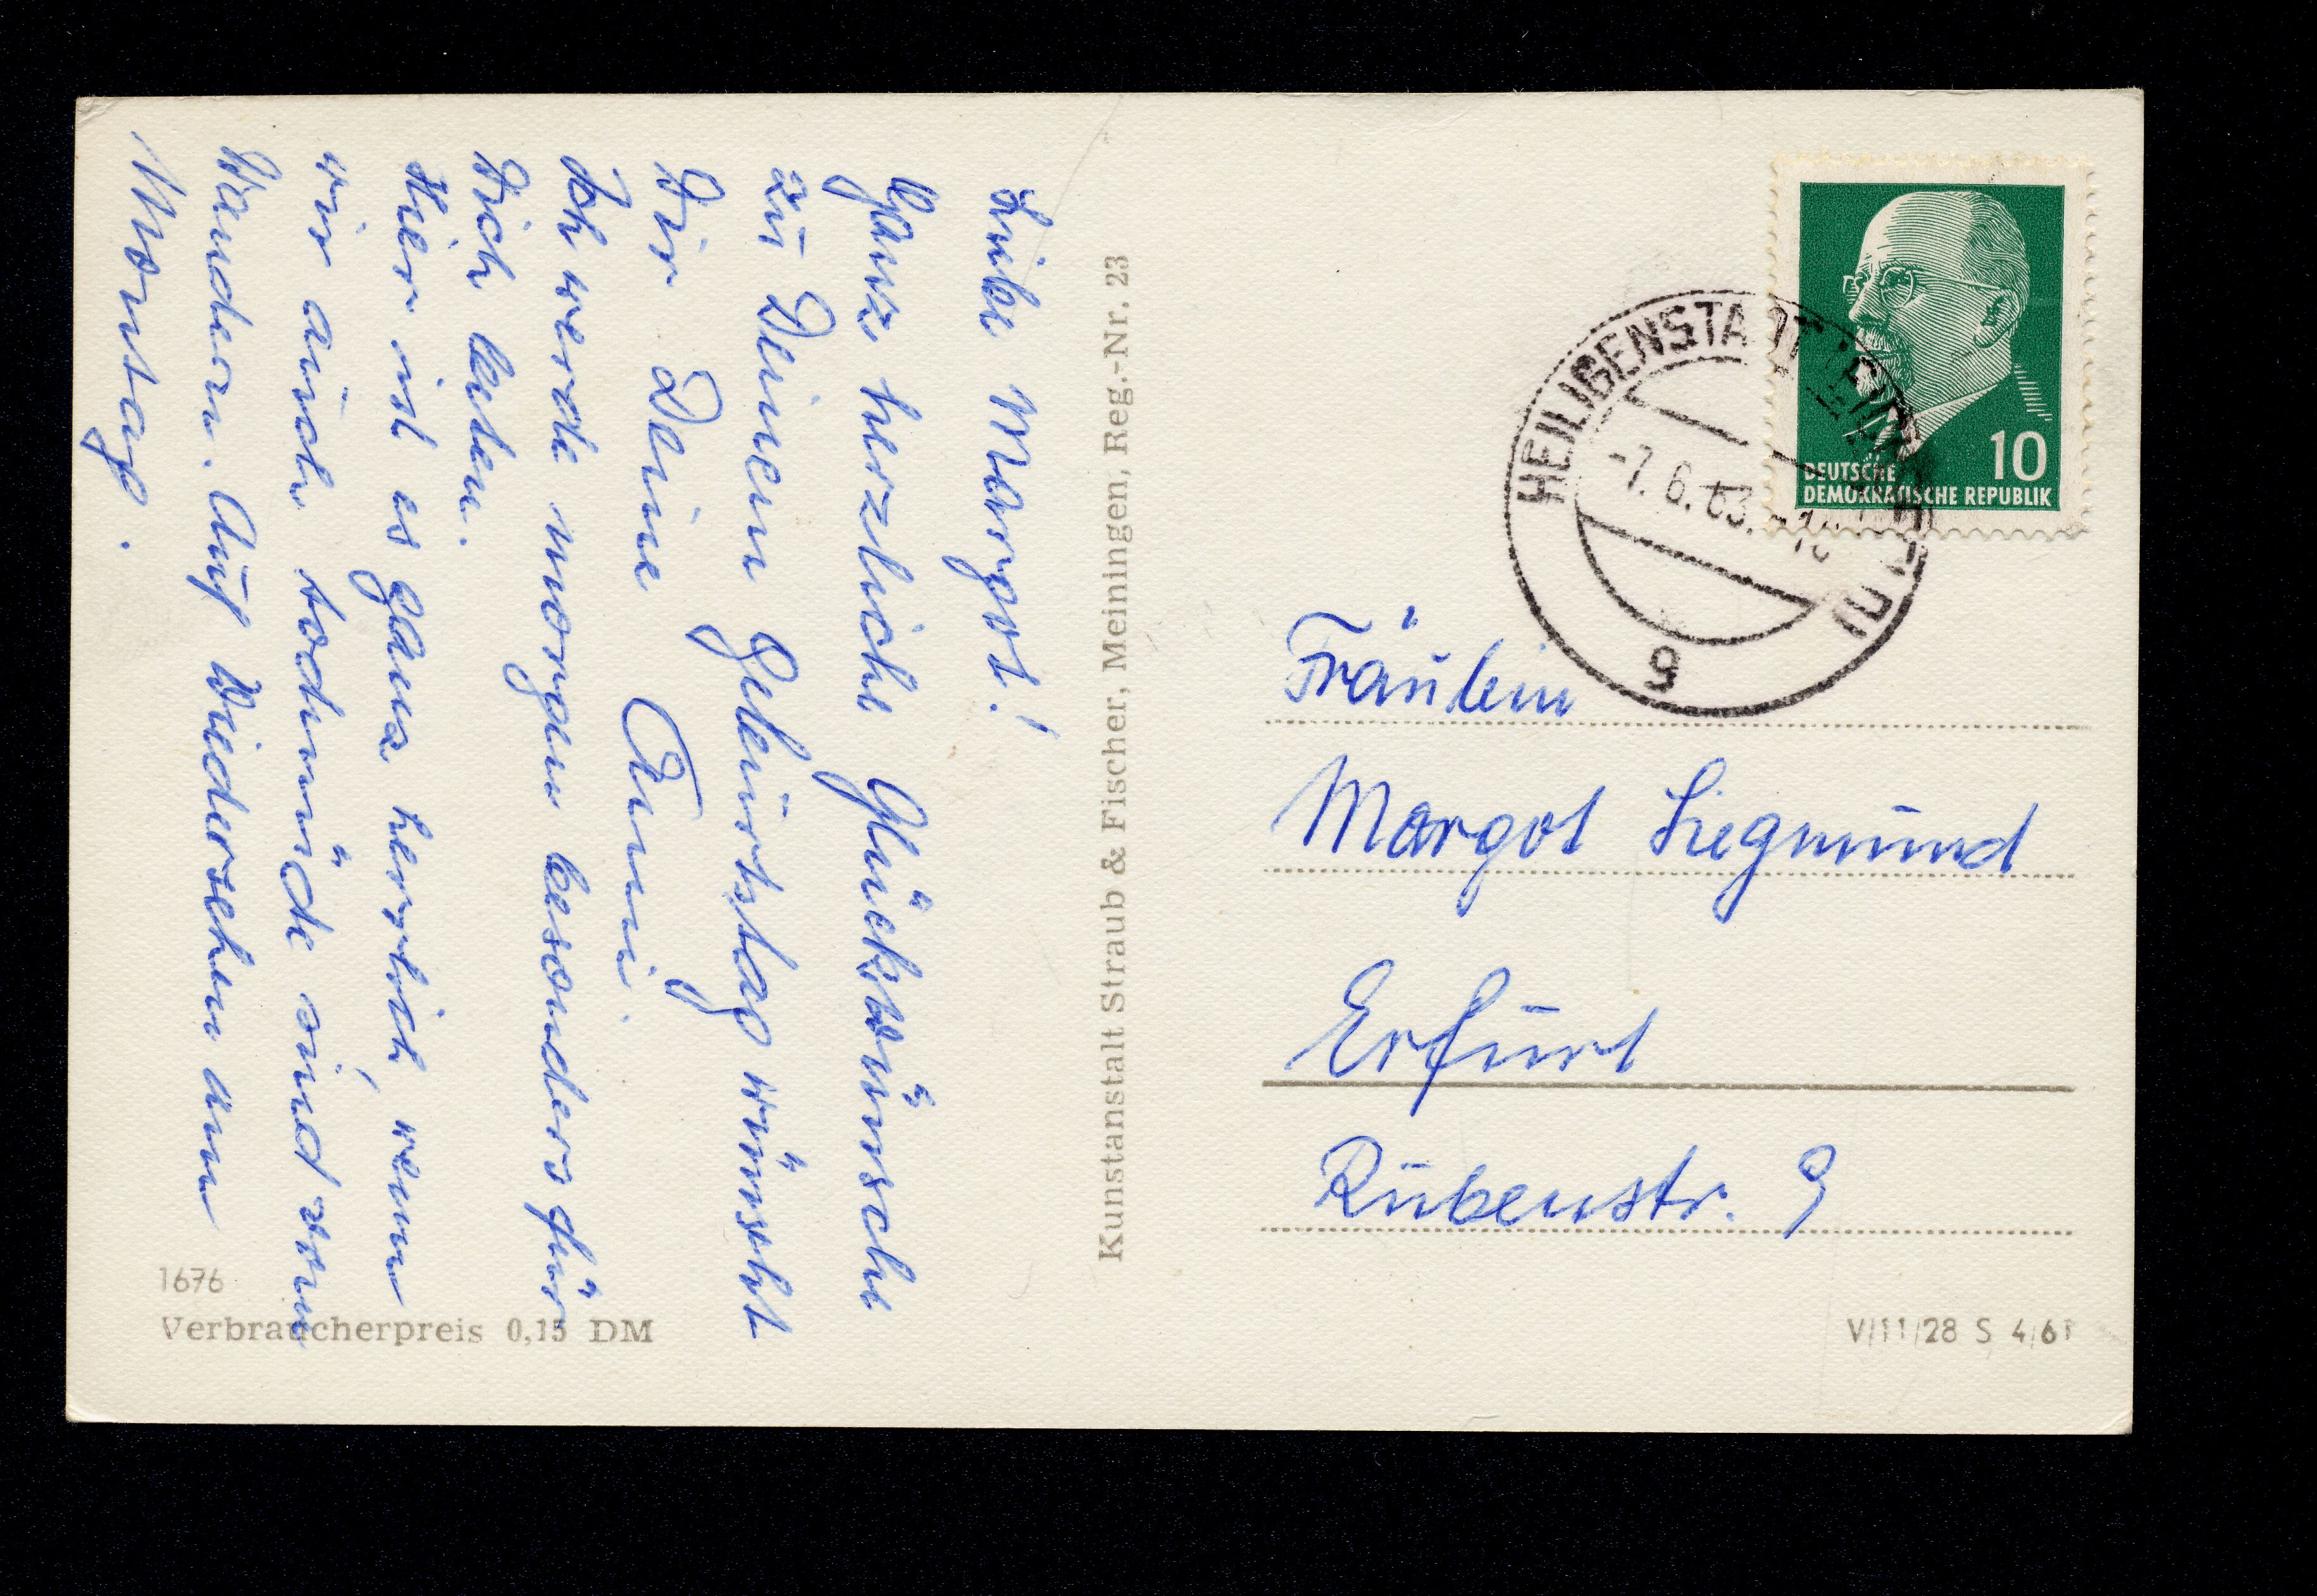 Liebe Margot!
Ganz herzliche Glückswünsche
zu Deinem Geburtstag wünscht
Dir Deine Anni
Ich werde morgen besonders für
Dich beten.
Hier ist es ganz herrlich, wenn
wir auch todmüde sind vom
Wandern. Auf Wiedersehen am
Montag.
1676
Verbraucherpreis 0,15 DM
Kunstanstalt Straub & Fischer, Meiningen, Reg.-Nr. 23
10
DEUTSCHE
DEMOKRATISCHE REPUBLIK
HEILIGENSTADT
-7.6.63.
g
Fräulein
Margot Siegmund
Erfurt
Rubenstr. 9
V/11/28 S 4/61